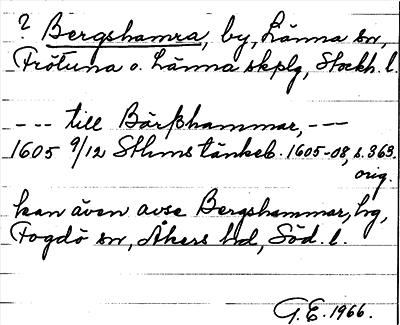 ? Bergshamra, by, Länna sn,
Frötuna o. Länna skplg, Stockh. l.
--- till Bärßhammar, ---
1605 9/12 Sthms tänkeb. 1605-08, s. 363.
orig.
kan även avse Bergshammar, hg,
Fogdö sn, Åkers hd, Söd. l.
G.E. 1966.